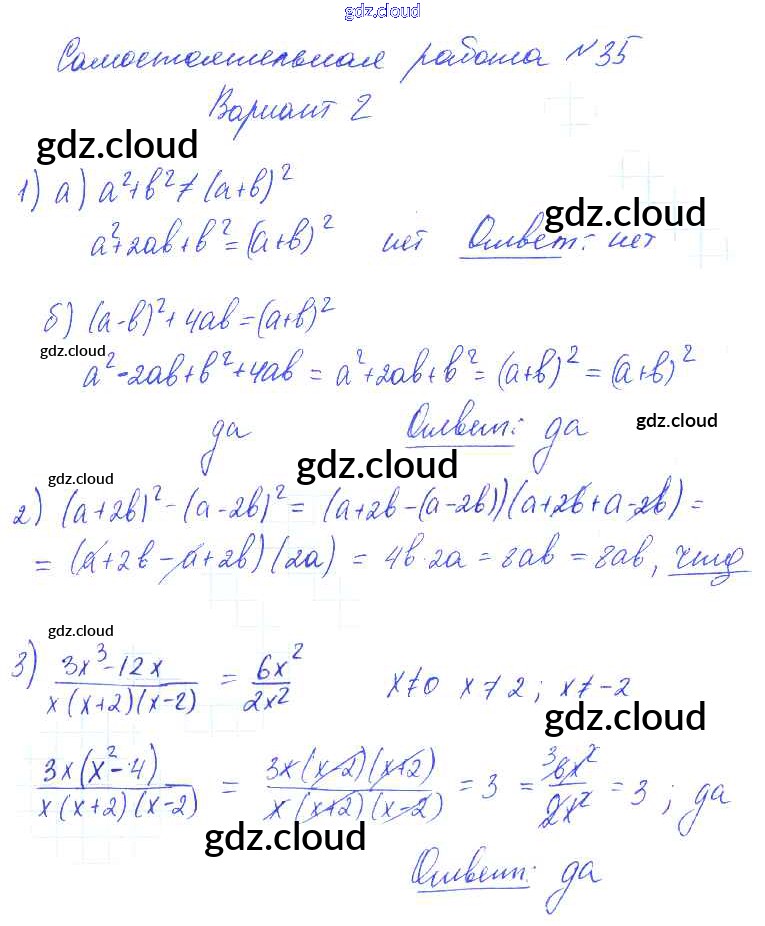 gdz.cloud
Самостоятельная работа №35
Вариант 2
gdz.cloud
1) а) a²+b² ≠ (a+b)²
gdz.cloud
a²+2ab+b² = (a+b)² нет Ответ: нет
б) (a-b)²+4ab=(a+b)²
gdz.cloud
a²-2ab+b²+4ab = a²+2ab+b² = (a+b)² = (a+b)²
gdz.cloud
да Ответ: да
gdz.cloud
gdz.cloud
2) (a+2b)²-(a-2b)² = (a+2b-(a-2b))(a+2b+a-2b) =
= (a+2b-a+2b)(2a) = 4b·2a = 8ab = 8ab, чтд
gdz.cloud
3) (3x³-12x)/(x(x+2)(x-2)) = 6x²/2x² x≠0 x≠2; x≠-2
gdz.cloud
3x(x²-4)/(x(x+2)(x-2)) = 3x(x-2)(x+2)/(x(x+2)(x-2)) = 3 = ³6x²/2x² = 3; да
gdz.cloud
Ответ: да